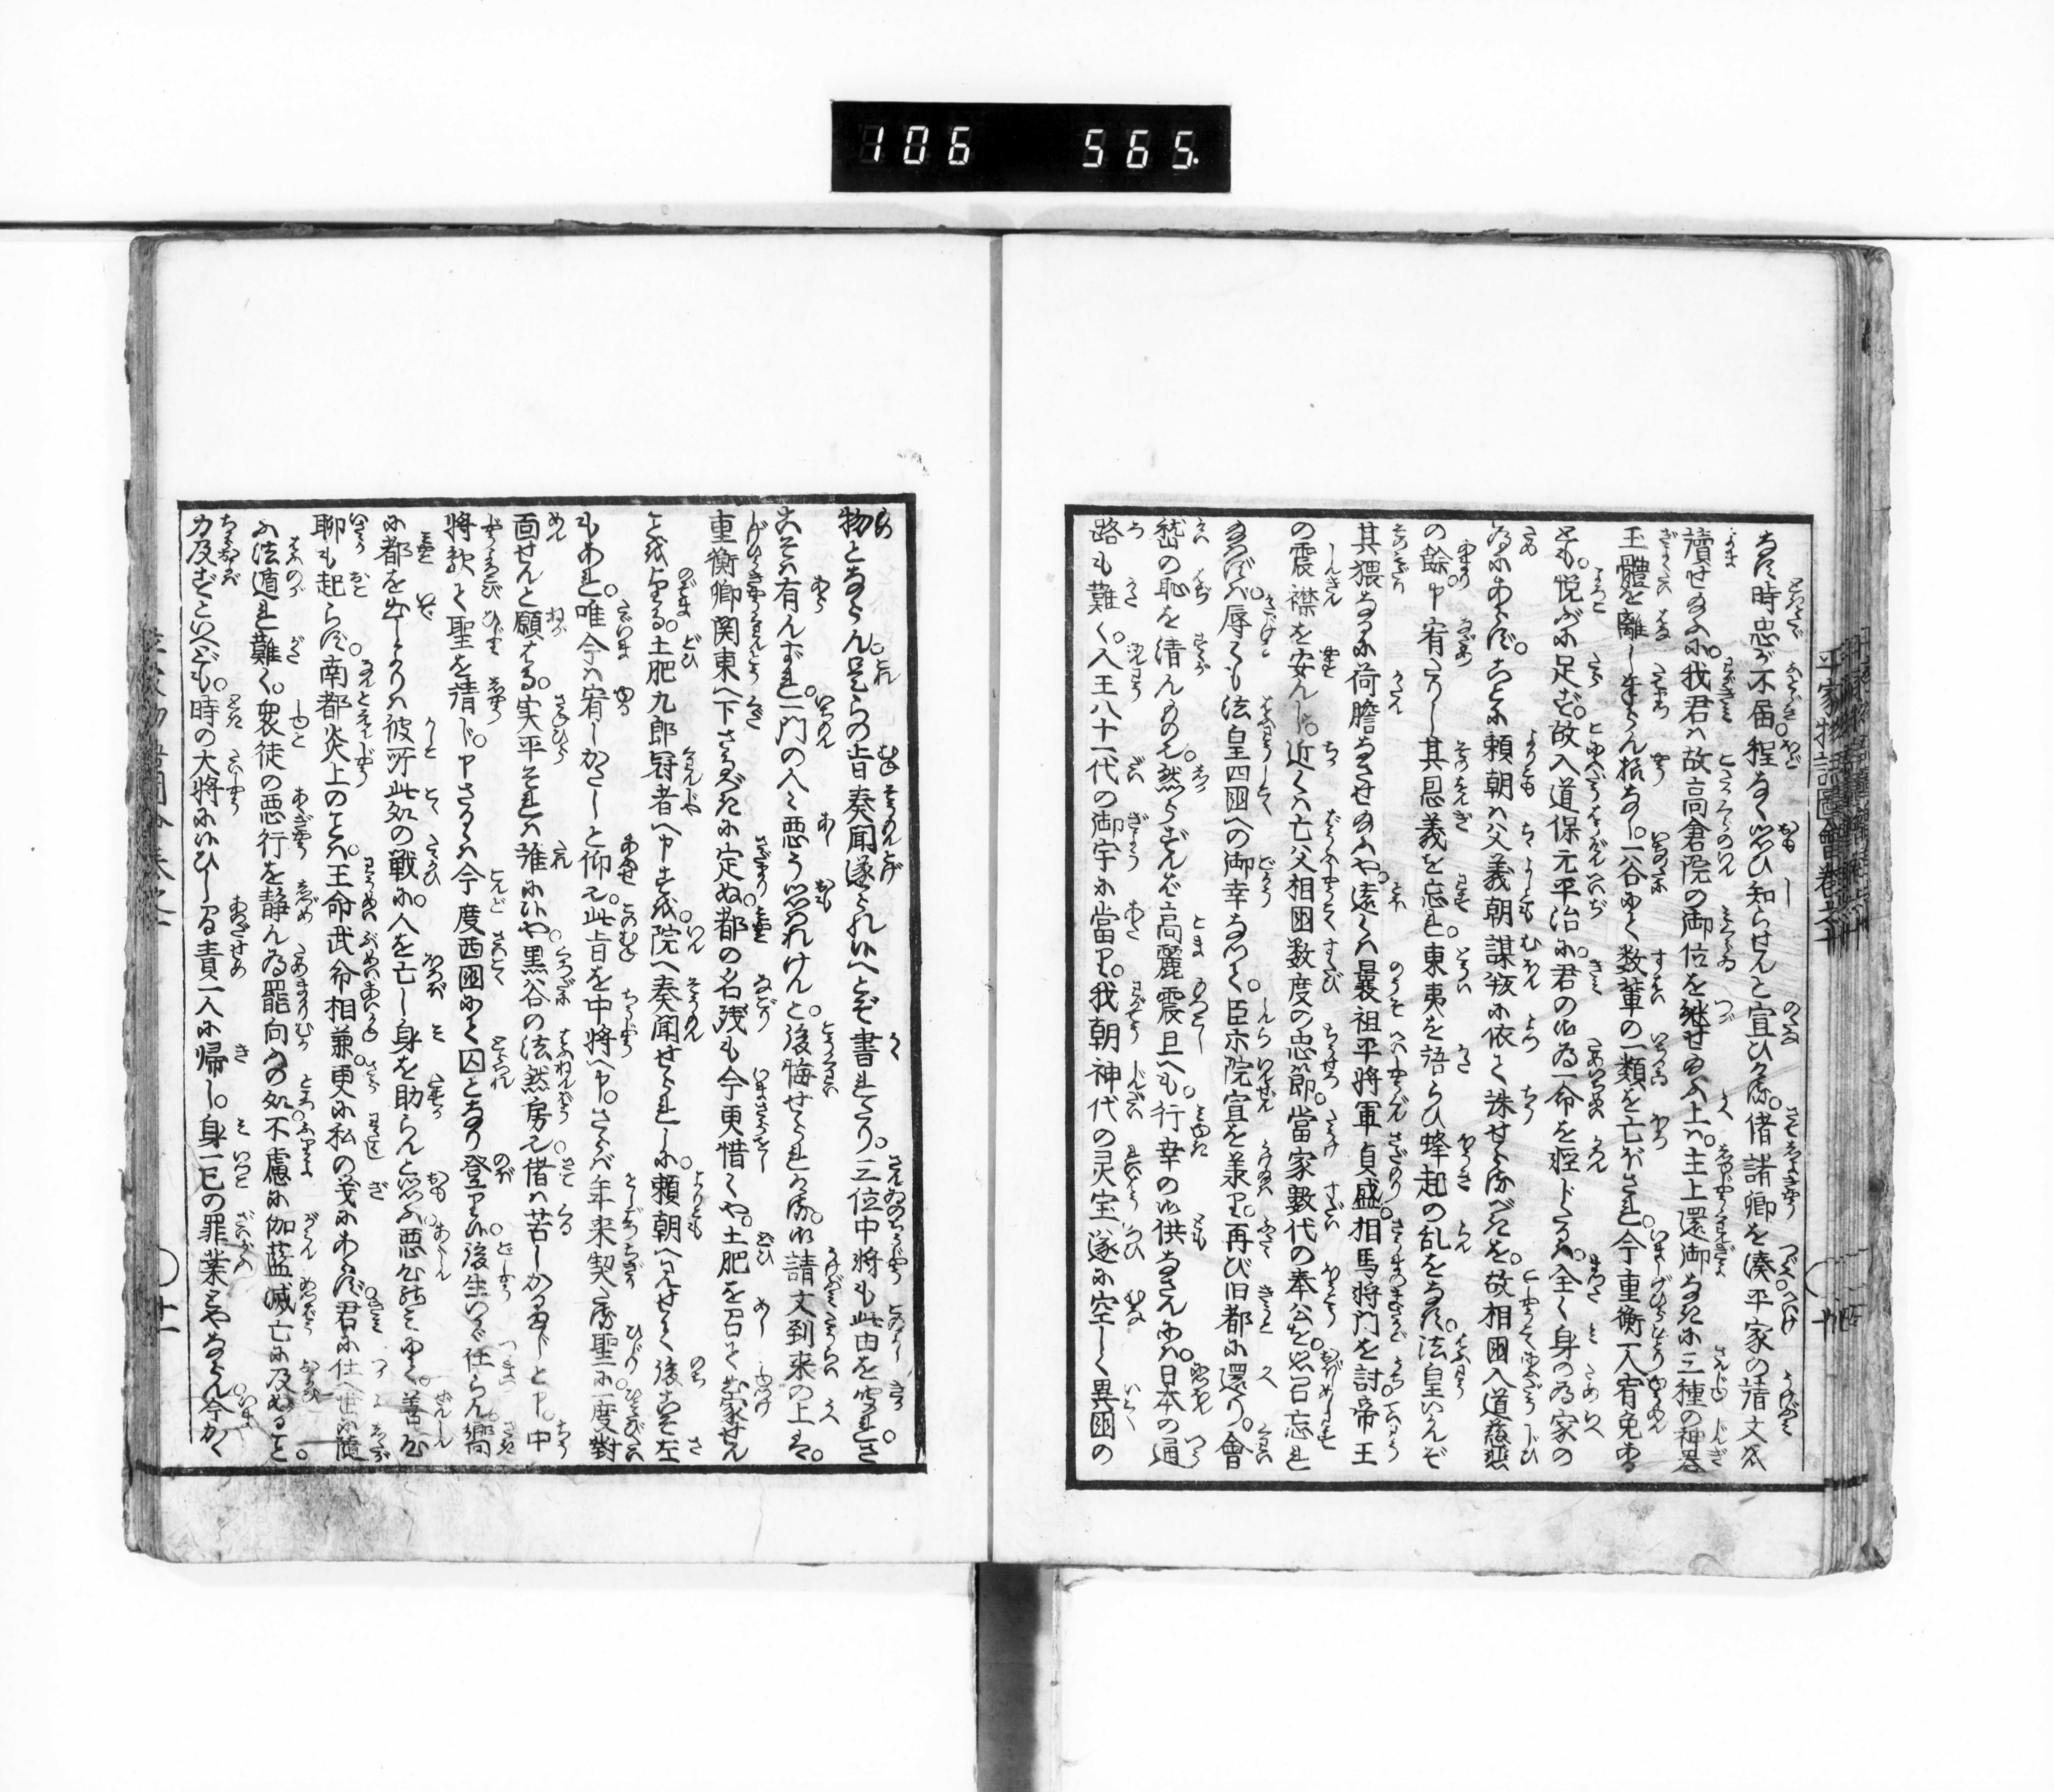 106 565.
平家物語圖會巻之十
なす時忠が不届。程なく思ひ知らせんと宣ひける。偖諸卿を湊平家の請文を
讀せ給ふに。我君は故高倉院の御位を継せ給ふ上は。主上還御なきに三種の神器
玉體を離し奉らん抔なし。一谷にて数輩の一類を亡ぼされ。今重衡一人宥免ある
とも。悦ぶに足ず。故入道保元平治に。君の御為一命を軽じたるは。全く身の為家の
為にあらず。ことに頼朝は父義朝謀叛に依て誅せらるべきを。故相国入道慈悲
の餘申宥たりし。其恩義を忘れ。東夷を語らひ蜂起の乱をなす。法皇いかんぞ
其猥なるに荷膽なさせ給ふや。遠くは曩祖平将軍貞盛。相馬将門を討。帝王
の震襟を安んじ。近くは亡父相国数度の忠節。當家数代の奉公を。思召忘れ
給はずは。辱くも法皇四国への御幸なつて。臣等院宣を承り。再び旧都に還り。會
嵆の恥を清んのみ。然らずんば高麗震旦へも。行幸の御供なさんには。日本の通
路も難く。人王八十一代の御宇に當り。我朝神代の灵宝。遂に空しく異国の
物となるらん。是らの旨奏聞遂られ候へとぞ書れたり。三位中将も此由を聞れ。さ
こそは有んずれ。一門の人々悪う思はれけんと。後悔せられける。御請文到来の上は。
重衡卿関東へ下さるべきに定ぬ。都の名残も今更惜くや。土肥を召て出家せん
とを望る。土肥九郎冠者へ申すを。院へ奏聞せられしに。頼朝へ見せて後こそ左
もあれ。唯今は宥しがたしと仰て。此旨を中将へ申。さらば年来契たる聖に一度對
面せんと願はる。実平それは誰に候や。黒谷の法然房也。偖は苦しかるまじと申。中
将歓て聖を請じ。申さるるは今度西国にて囚となり登り候。後生いかゞ仕らん。嚮
に都を出しよりは彼所此処の戦に。人を亡し身を助らんと思ふ。悪心のみにて善心
聊も起らず。南都炎上のとは。王命武命相兼。更に私の義にあらず。君に仕へ世に随
ふ法遁れ難く。衆徒の悪行を静ん為罷向ふの処。不慮に伽藍滅亡に及ぬると。
力及ずといへども。時の大将に候ひし間責一人に帰し。身一巳の罪業とやならん。今かく